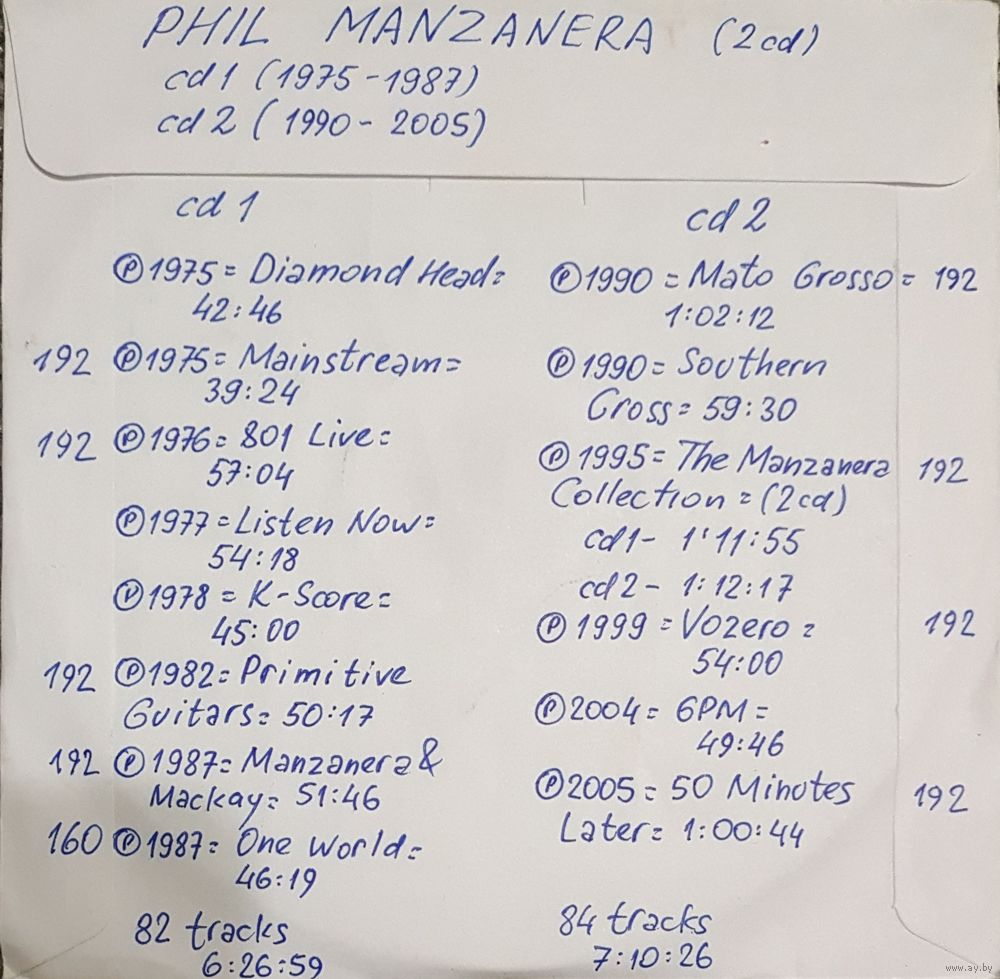 PHIL MANZANERA (2cd)
cd 1 (1975-1987)
cd 2 (1990-2005)
cd 1
Ⓟ1975= Diamond Head=
42:46
192 Ⓟ1975= Mainstream=
39:24
192 Ⓟ1976= 801 Live=
57:04
Ⓟ1977=Listen Now=
54:18
Ⓟ1978= K-Score=
45:00
192 Ⓟ1982= Primitive
Guitars= 50:17
192 Ⓟ1987= Manzanera&
Mackay= 51:46
160 Ⓟ1987= One World=
46:19
82 tracks
6:26:59
cd 2
Ⓟ1990= Mato Grosso= 192
1:02:12
Ⓟ1990= Southern
Cross= 59:30
Ⓟ1995= The Manzanera 192
Collection=(2cd)
cd1- 1'11:55
cd2- 1:12:17
Ⓟ1999=Vozero= 192
54:00
Ⓟ2004= 6PM=
49:46
Ⓟ2005= 50 Minutes 192
Later= 1:00:44
84 tracks
7:10:26
www.ay.by